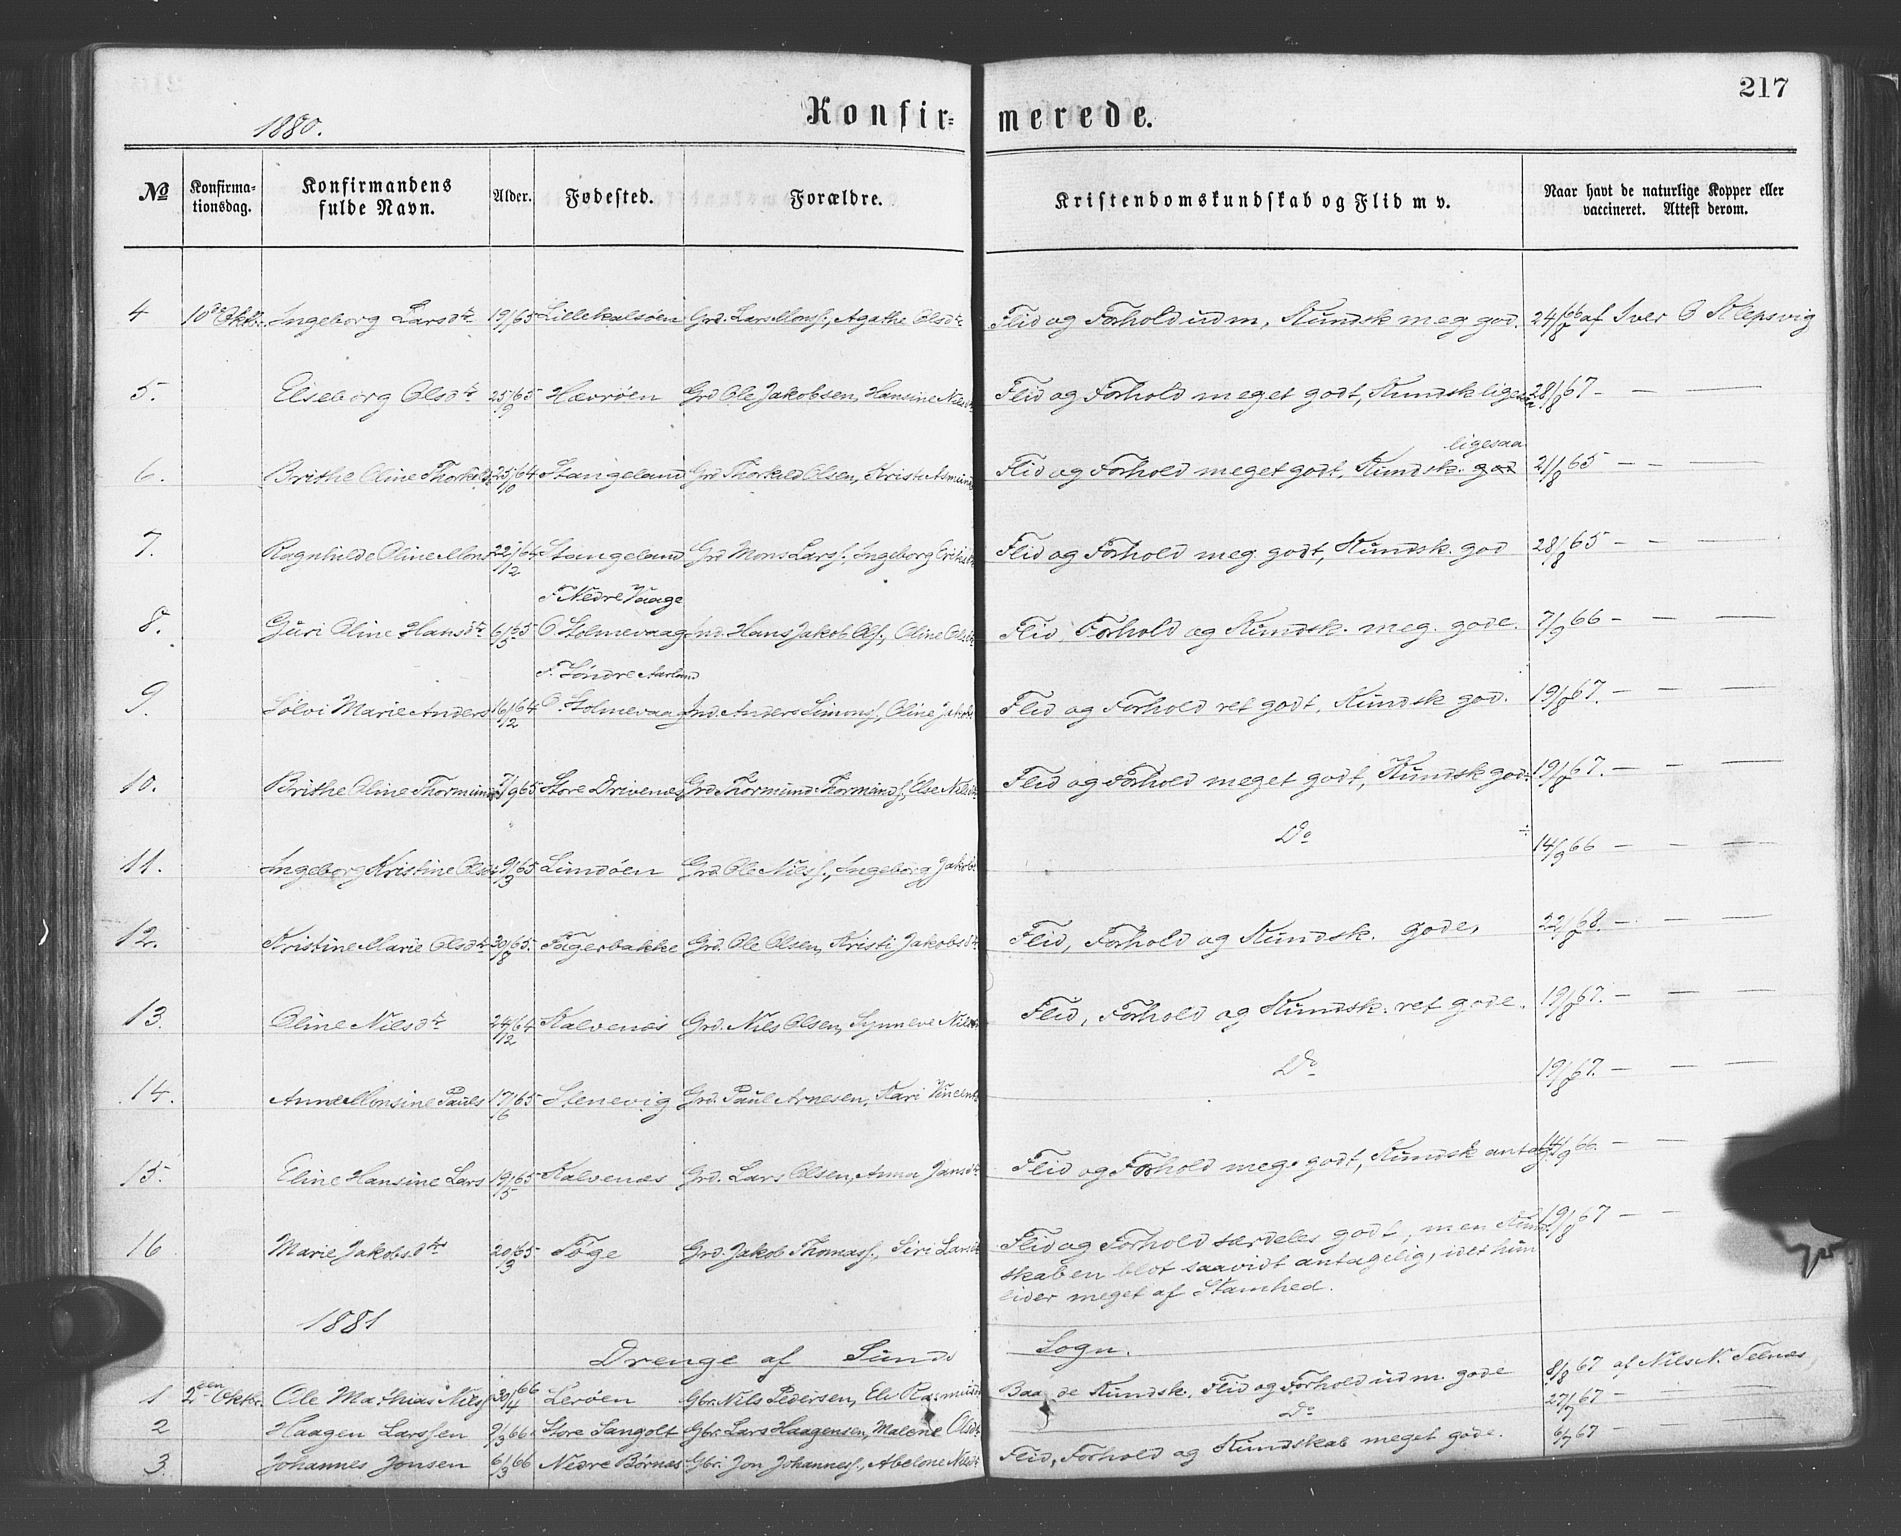 217
1880. Konfir= merede.
No Konfirma-tionsdag. Konfirmandens fulde Navn. Alder. Fødested. Forældre. Kristendomskundskab og Flid m v. Naar havt de naturlige Kopper eller vaccineret. Attest derom.
4 10de Oktbr. Ingeborg Larsdtr 19/ 65 Lillekalsøen Grd. Lars Monss., Agathe Olsdtr Flid og Forhold udm, Kundsk meg god. 24/8 66 af Iver O Klepsvig
5. Elseborg Olsdtr 25/9 65 Hævrøen Grd Ole Jakobsen, Hansine Nilsdtr Flid og Forhold meget godt, Kundsk ligesaa 28/8 67 - — —
ligesaa
6. Brithe Oline Thorkilds 25/10 64 Stangeland Grd Thorkild Olsen, Kristi Asmunds Flid og Forhold meget godt, Kundsk. god 21/8 65 — — —
7. Ragnhilde Oline Mons 22/12 64 Stangeland Grd Mons Larss., Ingeborg Eriks Flid og Forhold meg. godt, Kundsk. god 28/8 65 — — —
F Nedre Vaage
8. Guri Oline Hansdtr 6/5 65 O Stolmevaag Ind. Hans Jakob Ols., Oline Olsdtr Flid, Forhold og Kundsk. meg. gode. 7/9 66 — — —
F. Søndre Aarland
9. Sølvi Marie Anders 16/12 64 O. Stolmevaag Ind. Anders Simons., Oline Jakobs Flid og Forhold ret godt, Kundsk god. 19/8 67. — — —
10. Brithe Oline Thormunds 7/9 65 Store Drivenes Grd Thormund Thormunds., Else Nilsdtr Flid og Forhold meget godt, Kundsk god÷ 19/8 67. — — —
11. Ingeborg Kristine Olsdtr 9/3 65 Lundøen Grd. Ole Nilss., Ingeborg Jakobs Do ÷ 14/9 66 — — —
12. Kristine Marie Olsdtr 30/8 65. Føgerbakke Grd. Ole Olsen, Kristi Jakobsdtr Flid, Forhold og Kundsk. gode, 22/8 68. — — —
13. Oline Nilsdtr 24/12 64 Kalvenæs Grd. Nils Olsen, Synneve Nilsdtr Flid, Forhold og Kundsk. ret gode. 19/8 67. — — —
14. Anne Monsine Pauls 17/6 65 Stenevig Grd. Paul Arnesen, Kari Vincents Do 19/8 67. — — —
15. Eline Hansine Lars 19/5 65 Kalvenæs Grd. Lars Olsen, Anna Jansdtr Flid og Forhold meg. godt, Kundsk antag. 14/9 66. — —
16 Marie Jakobsdtr 20/3 65 Føge Grd. Jakob Thomass., Siri Larsdtr Flid og Forhold særdeles godt, men Kund 19/8 67 — — —
skaben blot saavidt antagelig, idet hun
lider meget af Stamhed.
1881
Drenge af Sunds Sogn.
1 2den Oktbr. Ole Mathias Nilss 30/4 66 Lerøen Gbr. Nils Pedersen, Eli Rasmusd Baade Kundsk., Flid og Forhold udm. gode 8/8 67 af Nils N. Telnæs
2 Haagen Larssen 9/3 66 Store Sangolt Gbr. Lars Haagensen, Malene Olsdtr Do 27/7 67 —
3. Johannes Jonsen 6/3 66 Nedre Børnæs Gbr. Jon Johanness., Abelone Nilsdtr Flid, Forhold og Kundskab meget gode. 6/7 67 —